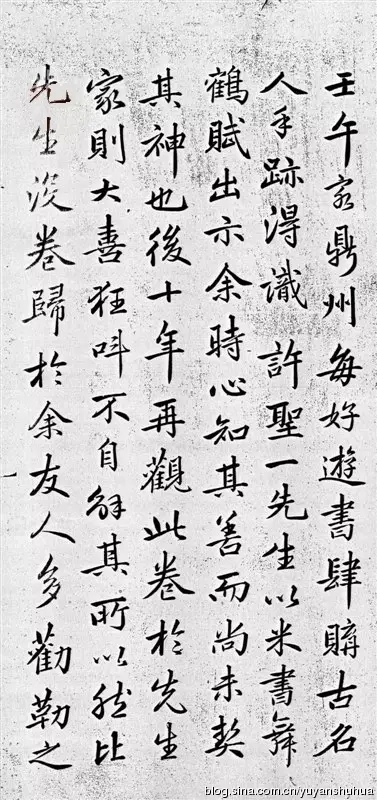 壬午客鼎州每好遊書肆購古名
人手跡得識許聖一先生以米書舞
鶴賦出示余時心知其善而尚未契
其神也後十年再觀此卷於先生
家則大喜狂叫不自解其所以然比
先生沒卷歸於余友人多勸勒之
blog.sina.com.cn/yuyanshuhua